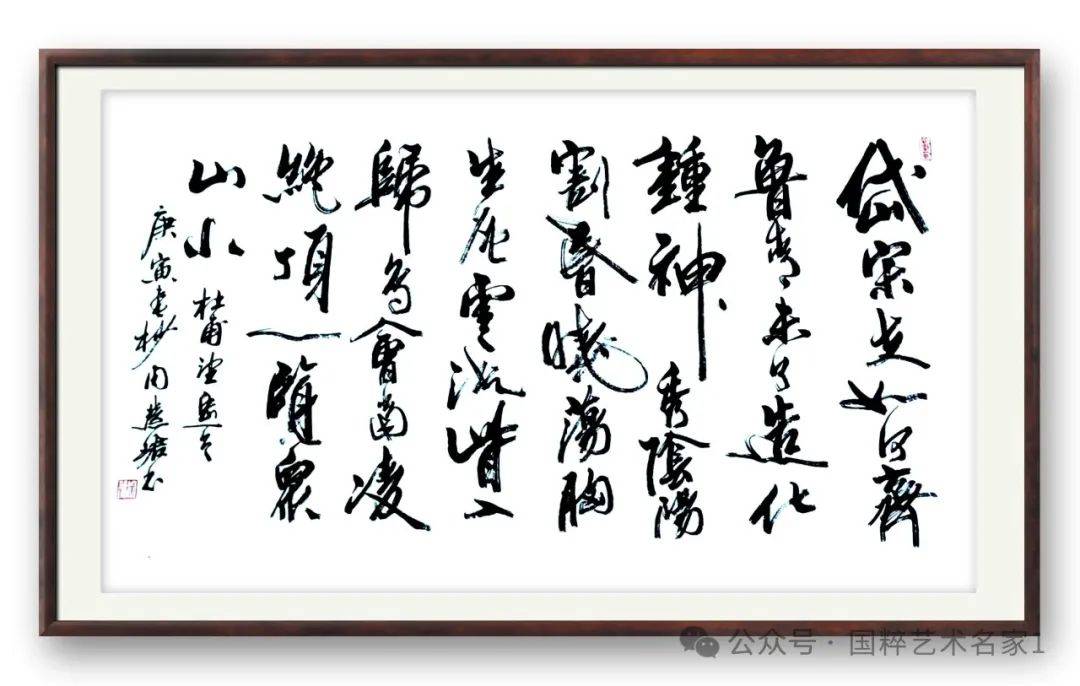 岱宗夫如何齊
魯青未了造化
鍾神秀陰陽
割昏曉蕩胸
生層雲決眥入
歸鳥會當凌
絶頂一覽衆
山小 杜甫望嶽
庚寅杪周書
公众号·国粹艺术名家1